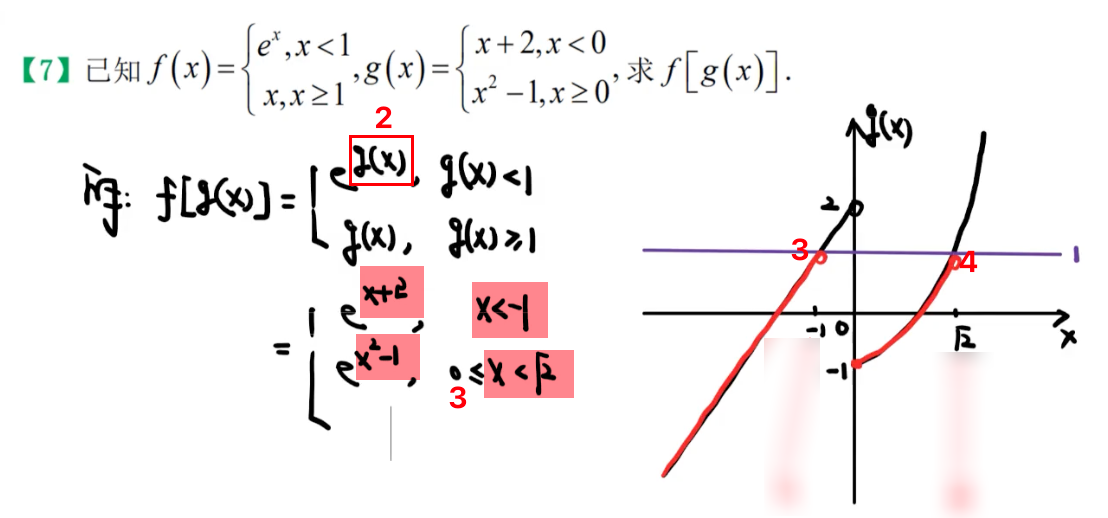 【7】已知 f(x)={e^x, x<1; x, x≥1, g(x)={x+2, x<0; x²−1, x≥0, 求 f[g(x)].
2
f[g(x)] = {e^g(x), g(x)<1
g(x), g(x)≥1
= {e^x+2, x<-1
e^x²-1, 0≤x<√2
3
g(x)
2
3
4
1
-1 0 √2 x
-1